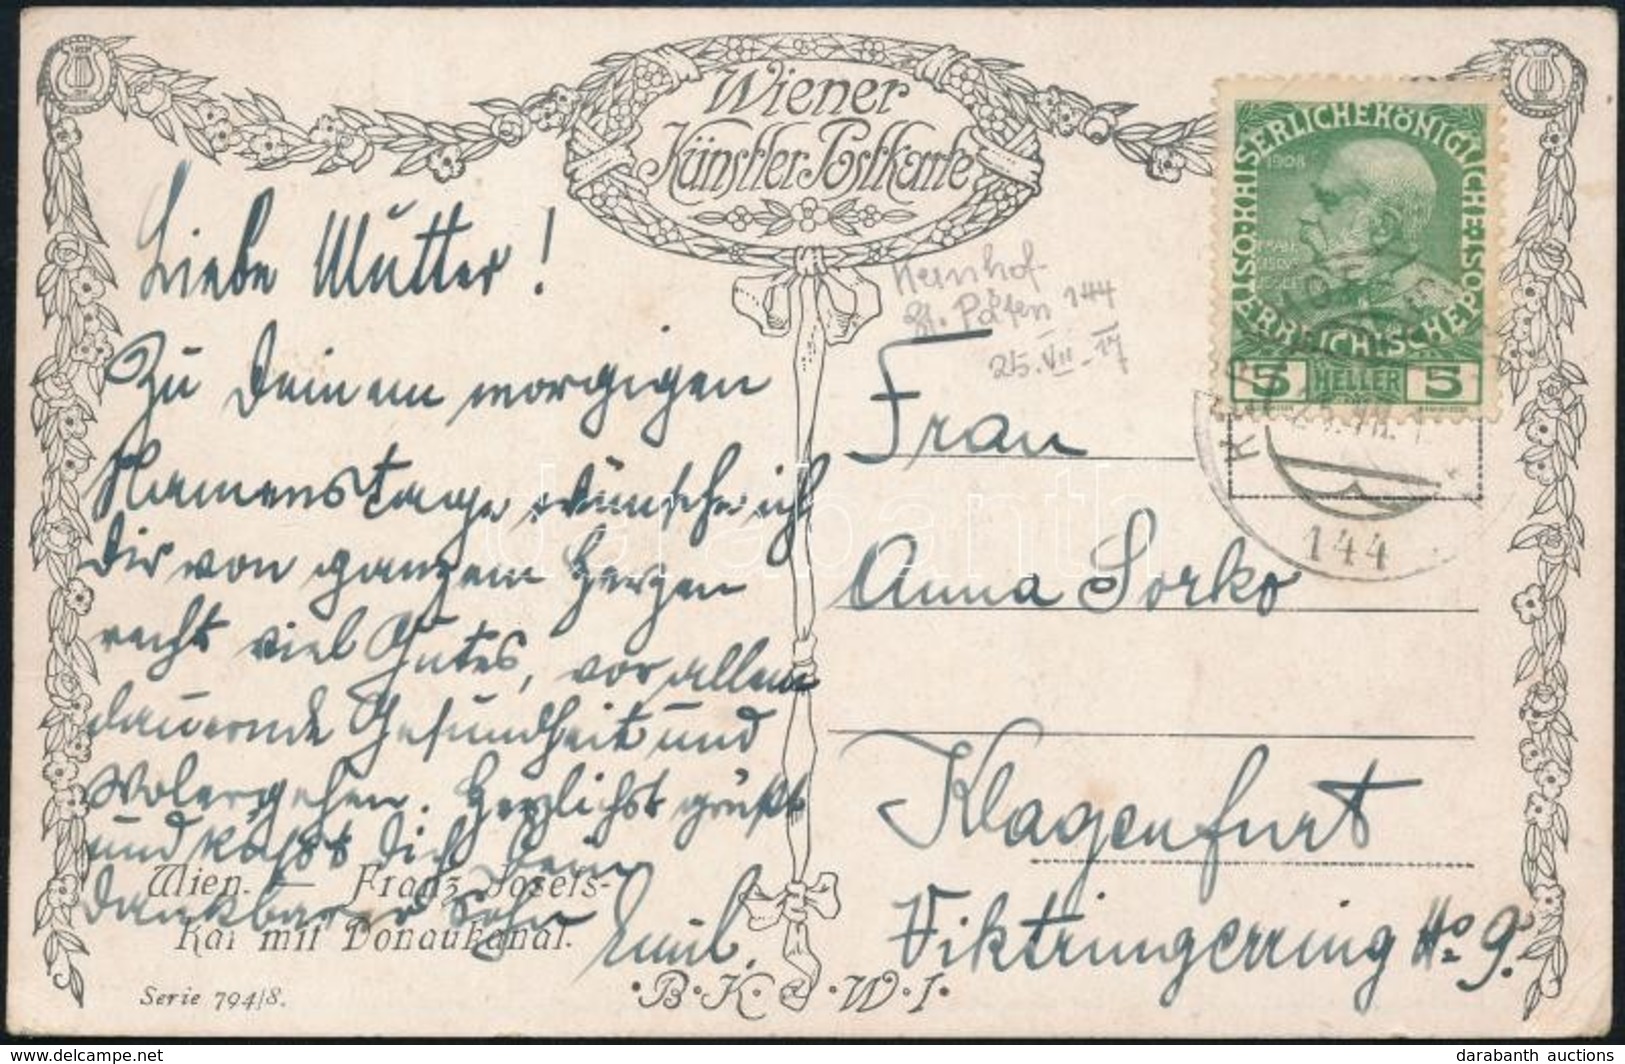 Wiener
Künstler-Postkarte
Liebe Mutter!
Zu Deinem morgigen
Namenstage wünsche ich
Dir von ganzem Herzen
recht viel Gutes, vor allem
dauernde Gesundheit und
Wolergehen. Herzlichst grüßt
und küßt Dich Dein
dankbarer Sohn
Emil.
Wien. — Franz Josefs-
Kai mit Donaukanal.
Serie 794/8.
B.K.W.I.
St. Pölten 144
25.VII.17
Frau
Anna Sorko
Klagenfurt
Viktringerring No 9.
KAISERLICHEKÖNIGLICHE
ÖSTERREICHISCHEPOST
1908
5 HELLER 5
144
darabanth
darabanth auctions
delcampe.net